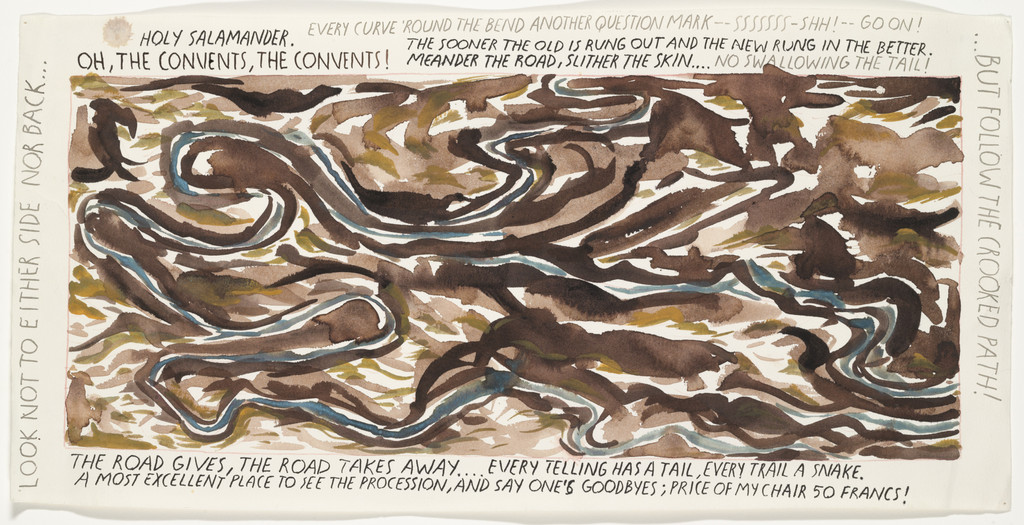 EVERY CURVE 'ROUND THE BEND ANOTHER QUESTION MARK -- SSSSSSS - SHH! -- GO ON!
HOLY SALAMANDER.
OH, THE CONVENTS, THE CONVENTS!
THE SOONER THE OLD IS RUNG OUT AND THE NEW RUNG IN THE BETTER.
MEANDER THE ROAD, SLITHER THE SKIN.... NO SWALLOWING THE TAIL!
LOOK NOT TO EITHER SIDE NOR BACK...
...BUT FOLLOW THE CROOKED PATH!
THE ROAD GIVES, THE ROAD TAKES AWAY.... EVERY TELLING HAS A TAIL, EVERY TRAIL A SNAKE.
A MOST EXCELLENT PLACE TO SEE THE PROCESSION, AND SAY ONE'S GOODBYES; PRICE OF MY CHAIR 50 FRANCS!